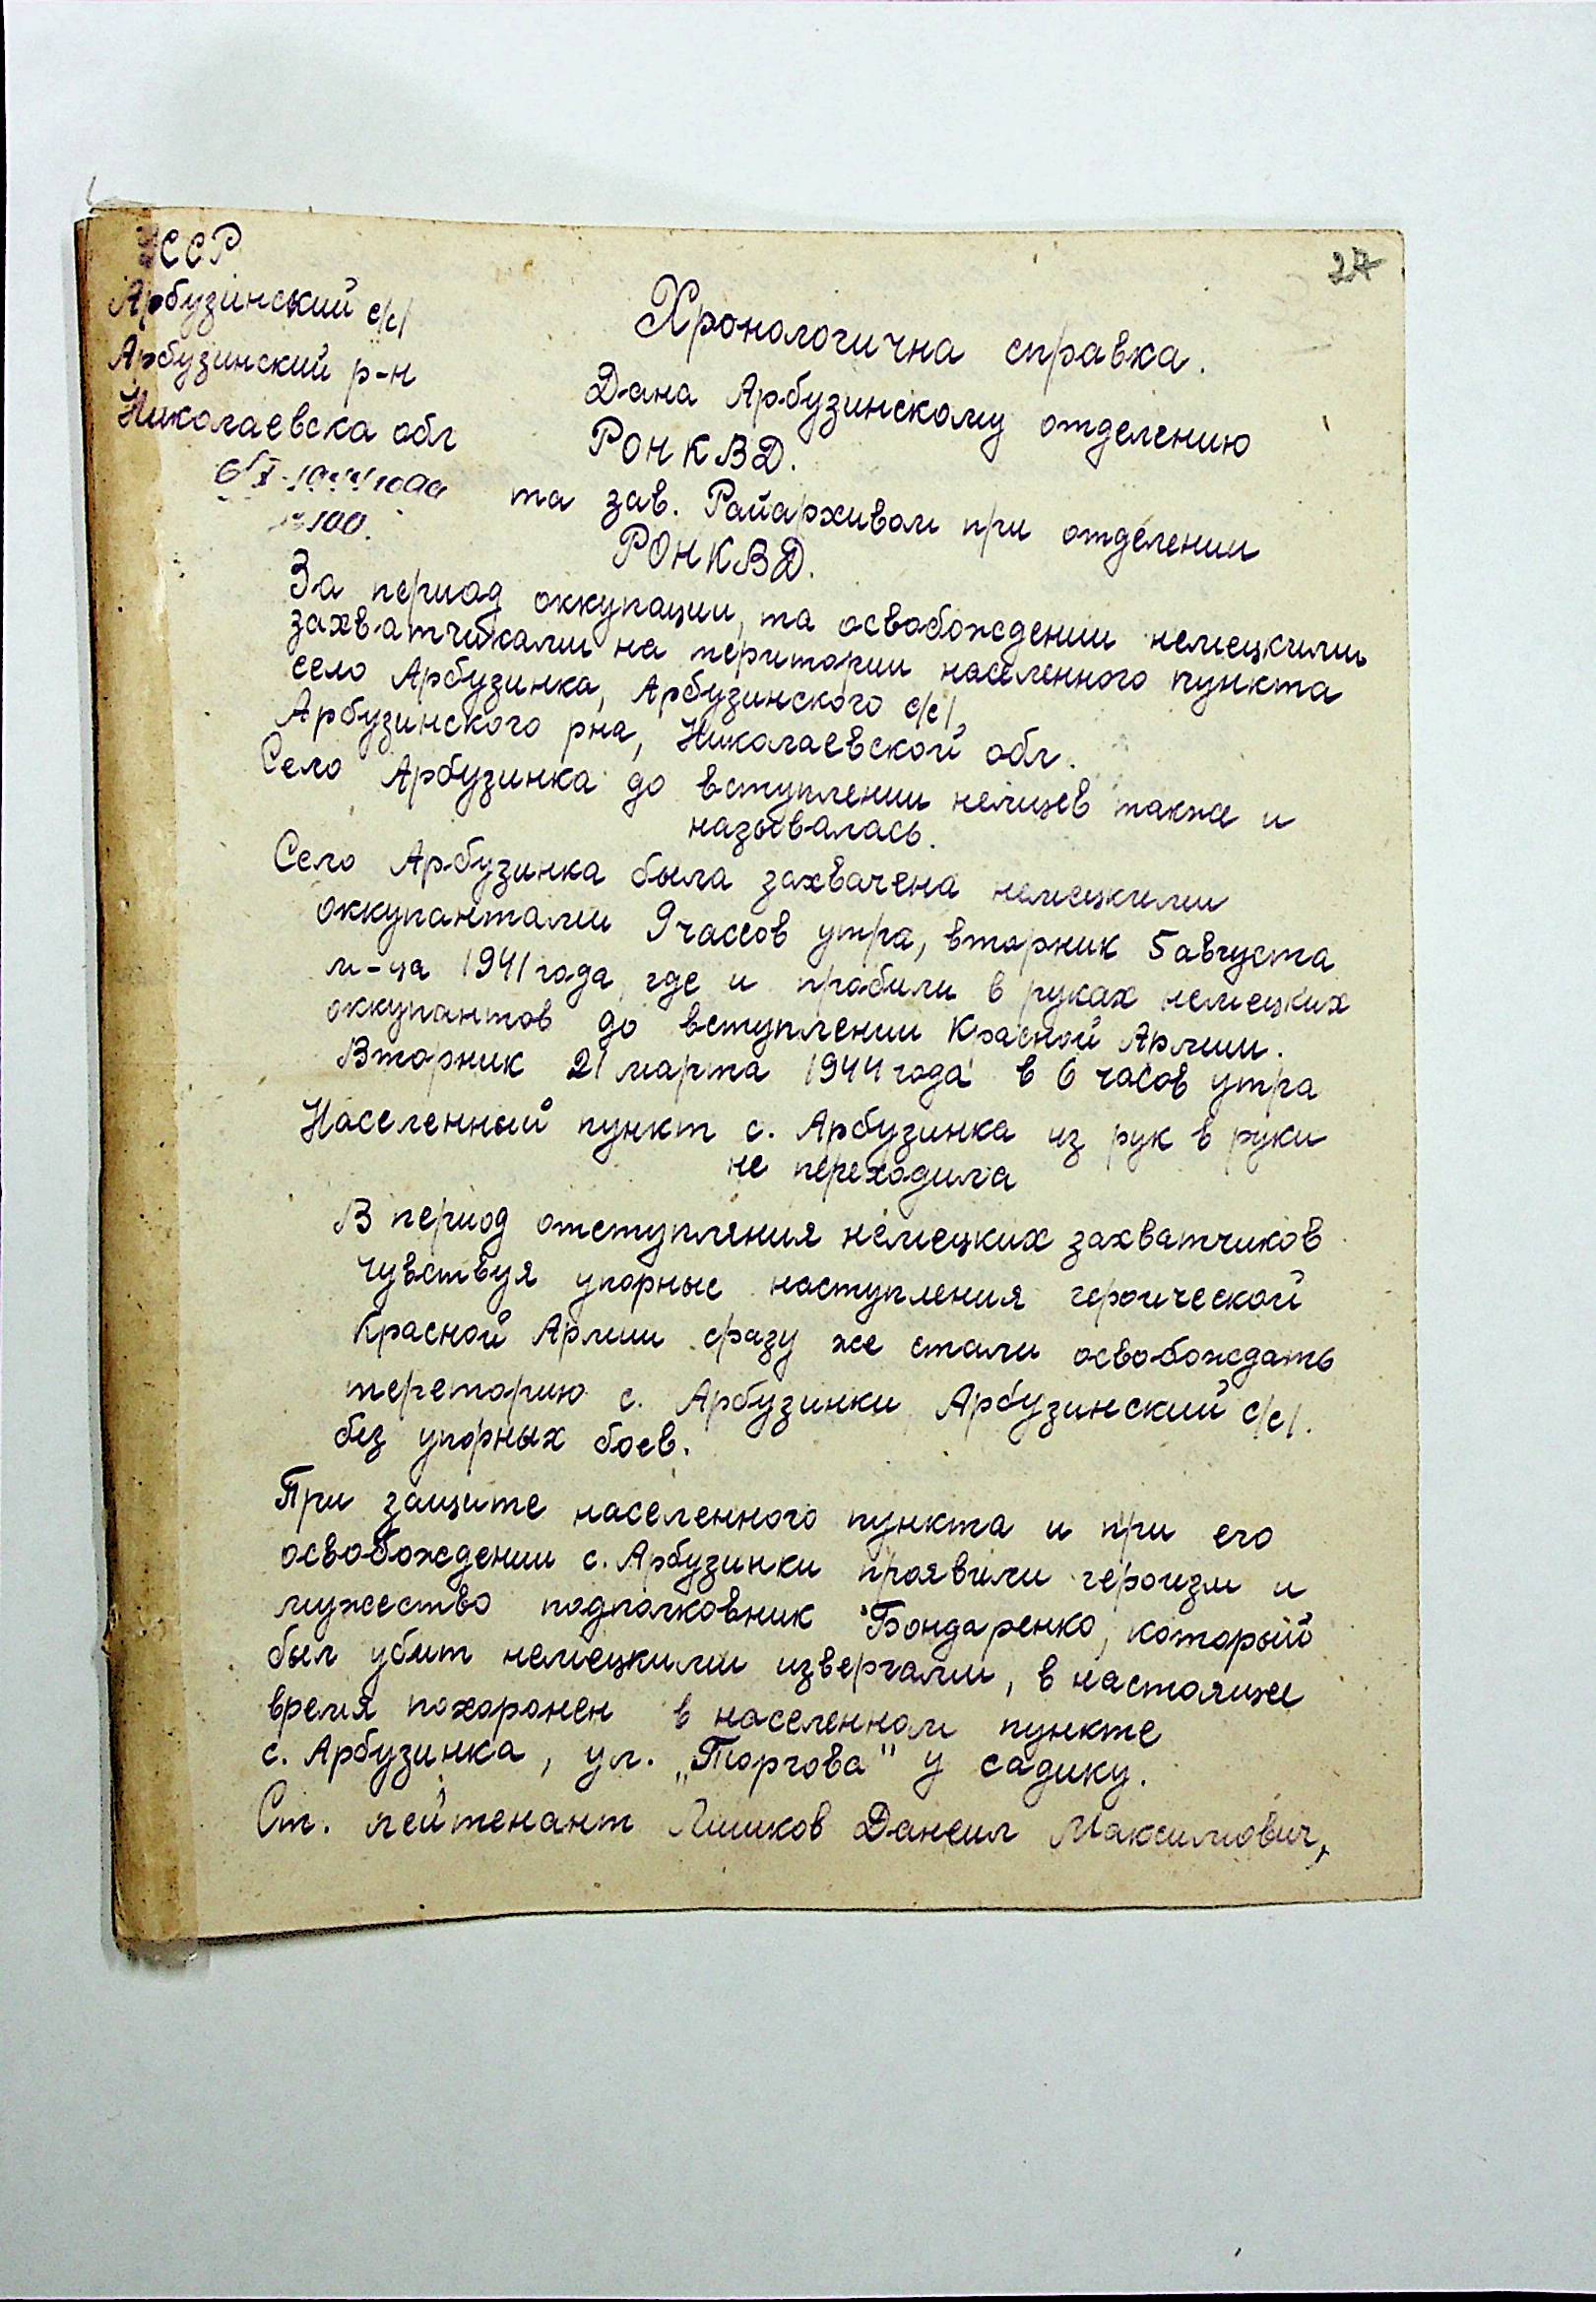 УССР
Арбузінский с/с/
Арбузинский р-н
Николаевска обл
6/X-1944 года
№100.
27
Хронологична справка.
Дана Арбузинскому отделению
РОНКВД.
та зав. Райархивом при отделении
РОНКВД.
За период оккупации, та освобождении немецкими
захватчиками на територии населенного пункта
село Арбузинка, Арбузинского с/с/
Арбузинского рна, Николаевской обл.
Село Арбузинка до вступлении немцев также и
называлась.
Село Арбузинка была захвачена немецкими
оккупантами 9 чассов утра, вторник 5 августа
м-ца 1941 года, где и пробили в руках немецких
оккупантов до вступлении Красной Армии.
Вторник 21 марта 1944 года в 6 часов утра
Населенный пункт с. Арбузинка из рук в руки
не переходила
В период отступляния немецких захватчиков
чувствуя упорные наступления героической
Красной Армии сразу же стали освобождать
тереторию с. Арбузинки, Арбузинский с/с/.
без упорных боев.
При защите населенного пункта и при его
освобождении с. Арбузинки проявили героизм и
мужество подполковник Бондаренко, который
был убит немецкими извергами, в настояще
время похоронен в населенном пункте
с. Арбузинка, ул. „Торгова" у садику.
Ст. лейтенант Данеил Максимович,